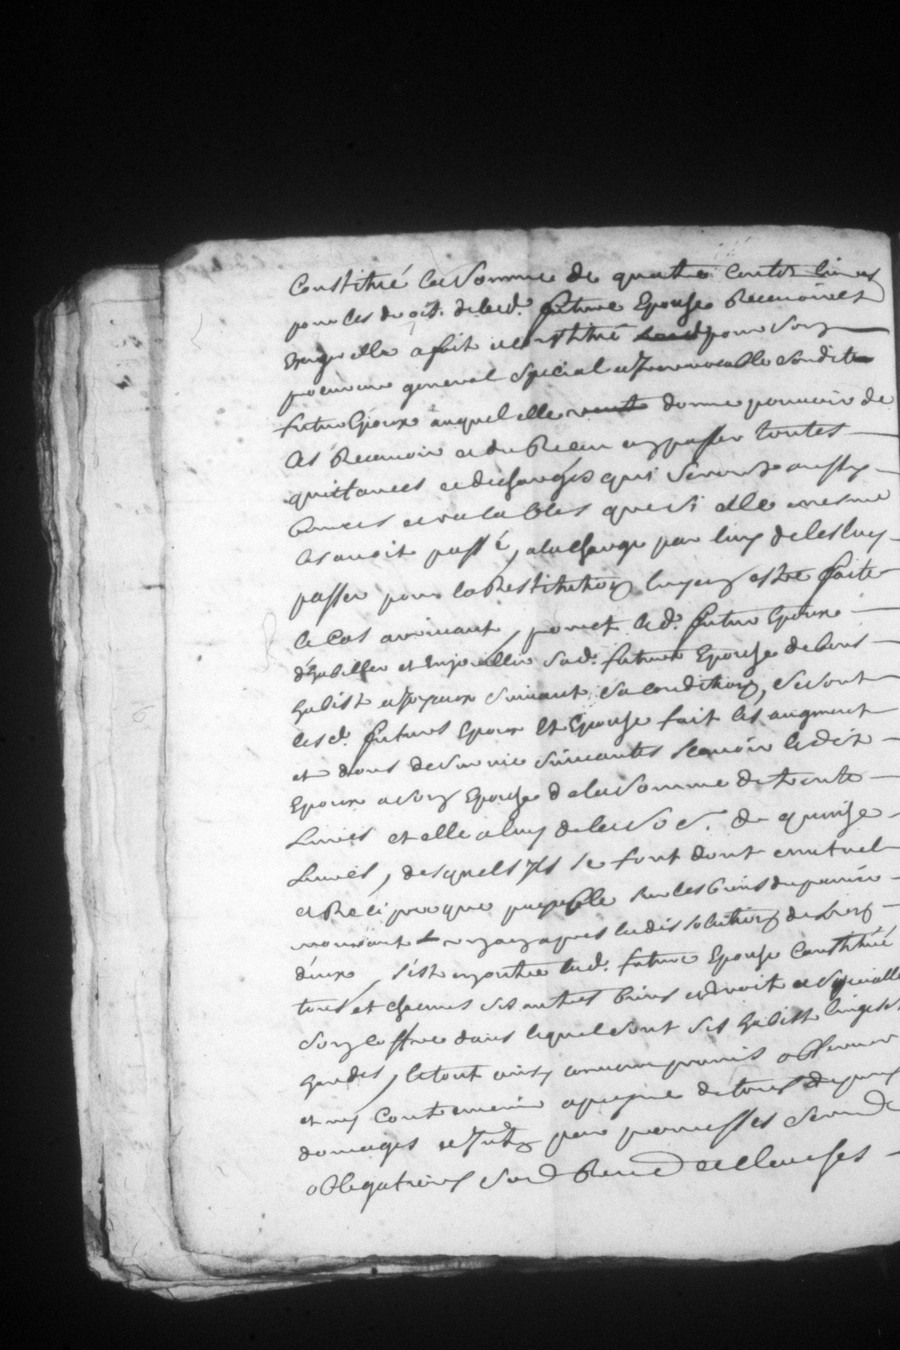 Constitué la somme de quatre cents livres
pour les droits de lad. future Epouse Recevoir et
Exiger elle a fait et constitué pour son
procureur general special et Irrevocable sondit
futur Epoux auquel elle donne pouvoir de
les Recevoir et du Receu en passer toutes
quittances et descharges qui seront aussy
bonnes et valables que si elle mesme
les avoit passé, a la charge par luy de les luy
passer pour la Restitution luy en estre faite
le cas avenant, promet led. futur Epoux
d'habiller et Enjoailler sad. future Epouse de bons
habist et joyaux suivant sa condition, se sont
lesd. futurs Epoux Et Epouse fait les augment
et dons de survie suivantes scavoir ledit
Epoux a son Epouse de la somme de trente
Livres et elle a luy de la so. de quinse
Livres, desquels Ils se font dont mutuel
et Reciproque payable sur les biens du premier
mourant un an apres la dissolution de Leur
deux, s'est en outre lad. future Epouse Constitué
tous et chacuns ses autres biens et droit et specialle
son coffre dans lequel sont ses habist linges et
hardes, le tout ainsy convenu promis observer
et ny Contrevenir a peyne de tous depens
domages et Intz par promesses serment
obligations sond Renon et clauses